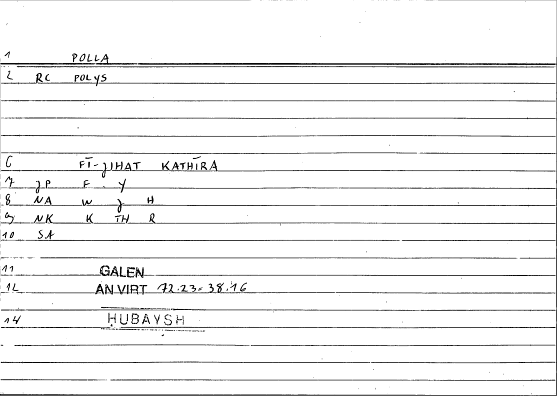 1 POLLA
2 RC POLYS
6 FĪ-JIHAT KATHĪRA
7 JP F . Y
8 NA W J H
9 NK K TH R
10 SA
11 GALEN
12 AN VIRT 72.23-38.16
14 ḤUBAYSH